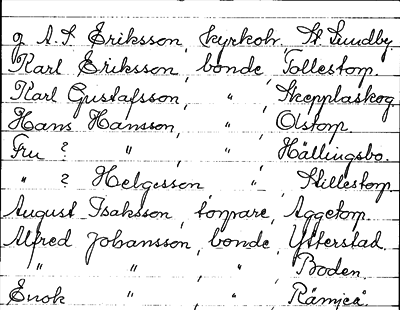 g A. S. Eriksson, kyrkoh., St. Sundby.
Karl Eriksson, bonde, Tollestorp.
Karl Gustafsson, " , Skepplaskog
Hans Hansson, " , Olstorp.
Fru ? " , " , Hällingsbo.
" ? Helgesson " , Hillestorp.
August Isaksson, torpare, Aggetorp.
Alfred Johansson, bonde, Ytterstad.
" " , " , Boden.
Enok " , "